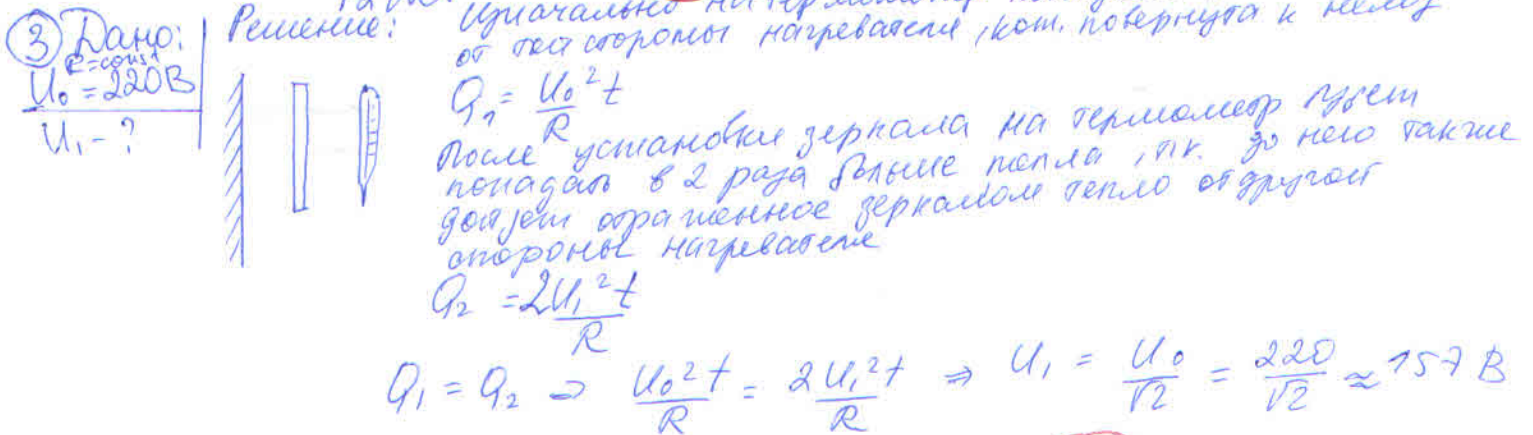 ③ Дано:
R=const
U₀ = 220В
U₁ - ?
Решение: Изначально на термометр
от той стороны нагревателя, кот. повернута к нему
Q₁ = U₀²t / R
После установки зеркала на термометр будет
попадать в 2 раза больше тепла, т.к. до него также
дойдет отраженное зеркалом тепло от другой
стороны нагревателя
Q₂ = 2U₁²t / R
Q₁ = Q₂ ⇒ U₀²t / R = 2U₁²t / R ⇒ U₁ = U₀ / √2 = 220 / √2 ≈ 157 В